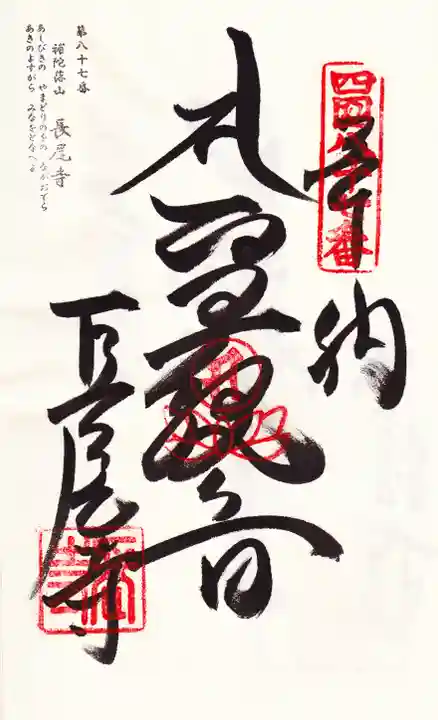 四国八十七番
奉納
聖観音
長尾寺
第八十七番
補陀落山 長尾寺
あしびきの やまどりのをの ながおでら
あきのよすがら みなをとなへよ